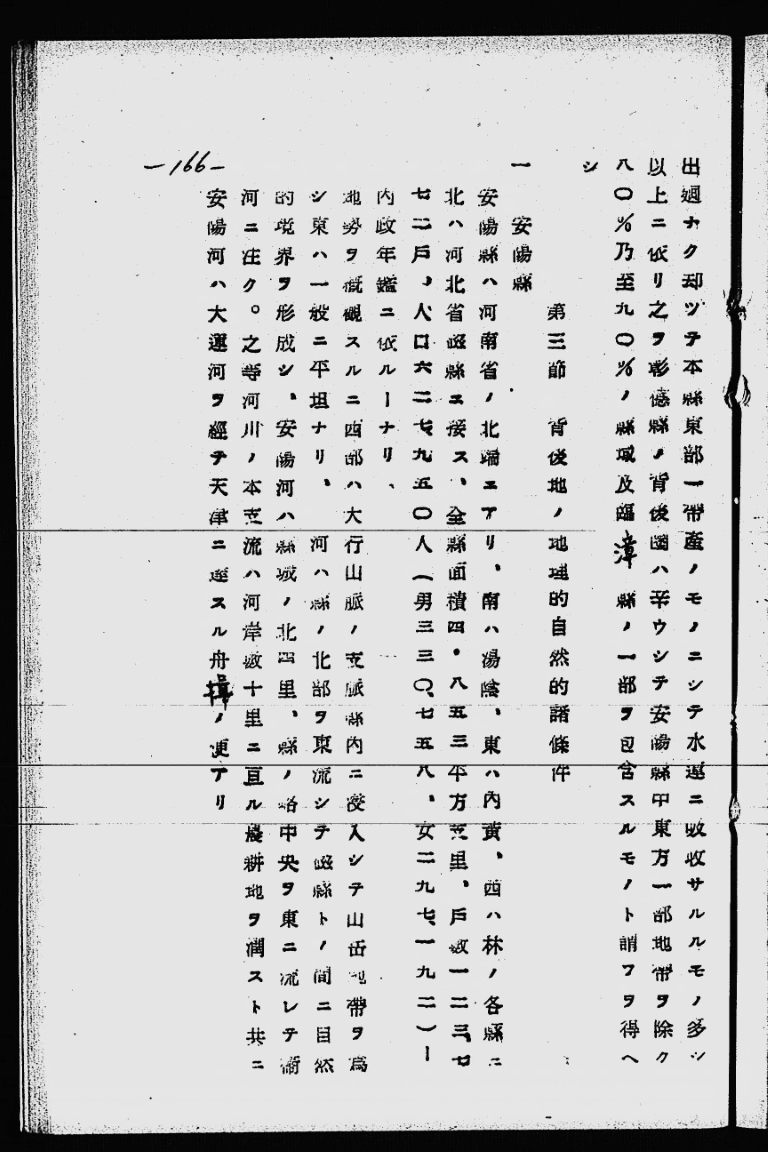 出廻ナク却ツテ本縣東部一帶産ノモノニシテ水運ニ吸收サルルモノ多シ
以上ニ依リ之ヲ彰德縣ノ背後圏ハ辛ウシテ安陽縣中東方一部地帶ヲ除ク
八〇％乃至九〇％ノ縣域及臨漳縣ノ一部ヲ包含スルモノト謂フヲ得ヘ
シ
第三節　背後地ノ地理的自然的諸條件
一　安陽縣
安陽縣ハ河南省ノ北端ニアリ、南ハ湯陰、東ハ內黃、西ハ林ノ各縣ニ
北ハ河北省磁縣ニ接ス、全縣面積四・八五三平方支里、戶數一二三、七
七二戶、人口六二七、九五〇人（男三三〇、七五八、女二九七、一九二）ー
內政年鑑ニ依ルーナリ、
地勢ヲ槪觀スルニ西部ハ大行山脈ノ支脈縣內ニ浸入シテ山岳地帶ヲ爲
シ東ハ一般ニ平坦ナリ、　河ハ縣ノ北部ヲ東流シテ磁縣トノ間ニ自然
的境界ヲ形成シ、安陽河ハ縣城ノ北四里、縣ノ略中央ヲ東ニ流レテ衞
河ニ注ク。之等河川ノ本支流ハ河岸數十里ニ亘ル農耕地ヲ潤スト共ニ
安陽河ハ大運河ヲ經テ天津ニ達スル舟揖ノ便アリ
—166—